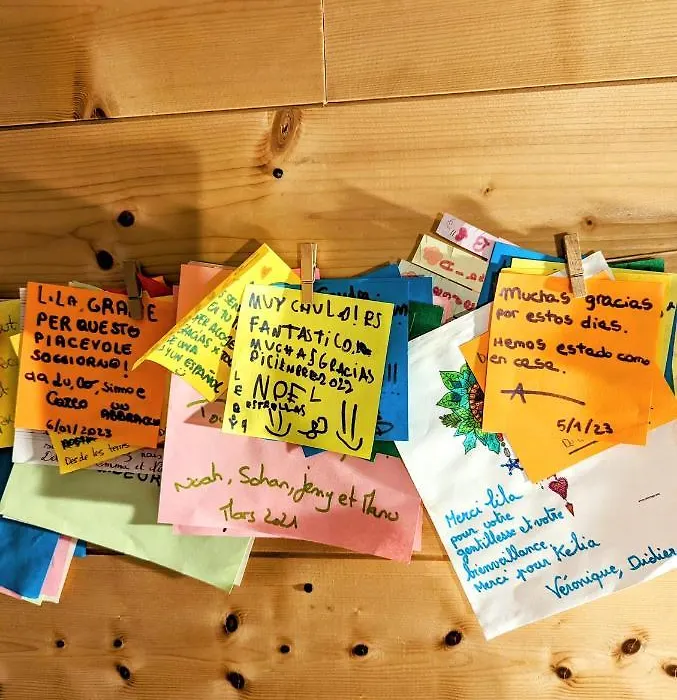 LILA, GRAZIE
PER QUESTO
PIACEVOLE
SOGGIORNO!
da Lu, Co, Simo e
Coco un
ABBRACCIO
6/01/2023
Desde les terres
SEA
CA TU
PER ACOGE
UNA
Y UN ESPAÑOL
MUY CHULO! ES
FANTASTICO.
MUCHAS GRACIAS
DICIENBRE 2022
NOEL
ESTRELLAS
Noah, Sohan, Jenny et Manu
Mars 2021
Muchas gracias,
por estos dias.
Hemos estado como
en casa.
A
5/1/23
Merci Lila
pour votre
gentillesse et votre
bienveillance
Merci pour Kelia
Véronique, Didier